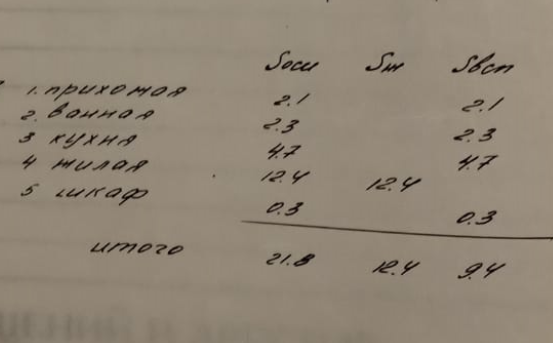 Sосн Sж Sвсп
1. прихожая 2.1 2.1
2. ванная 2.3 2.3
3 кухня 4.7 4.7
4 жилая 12.4 12.4
5 шкаф 0.3 0.3
итого 21.8 12.4 9.4